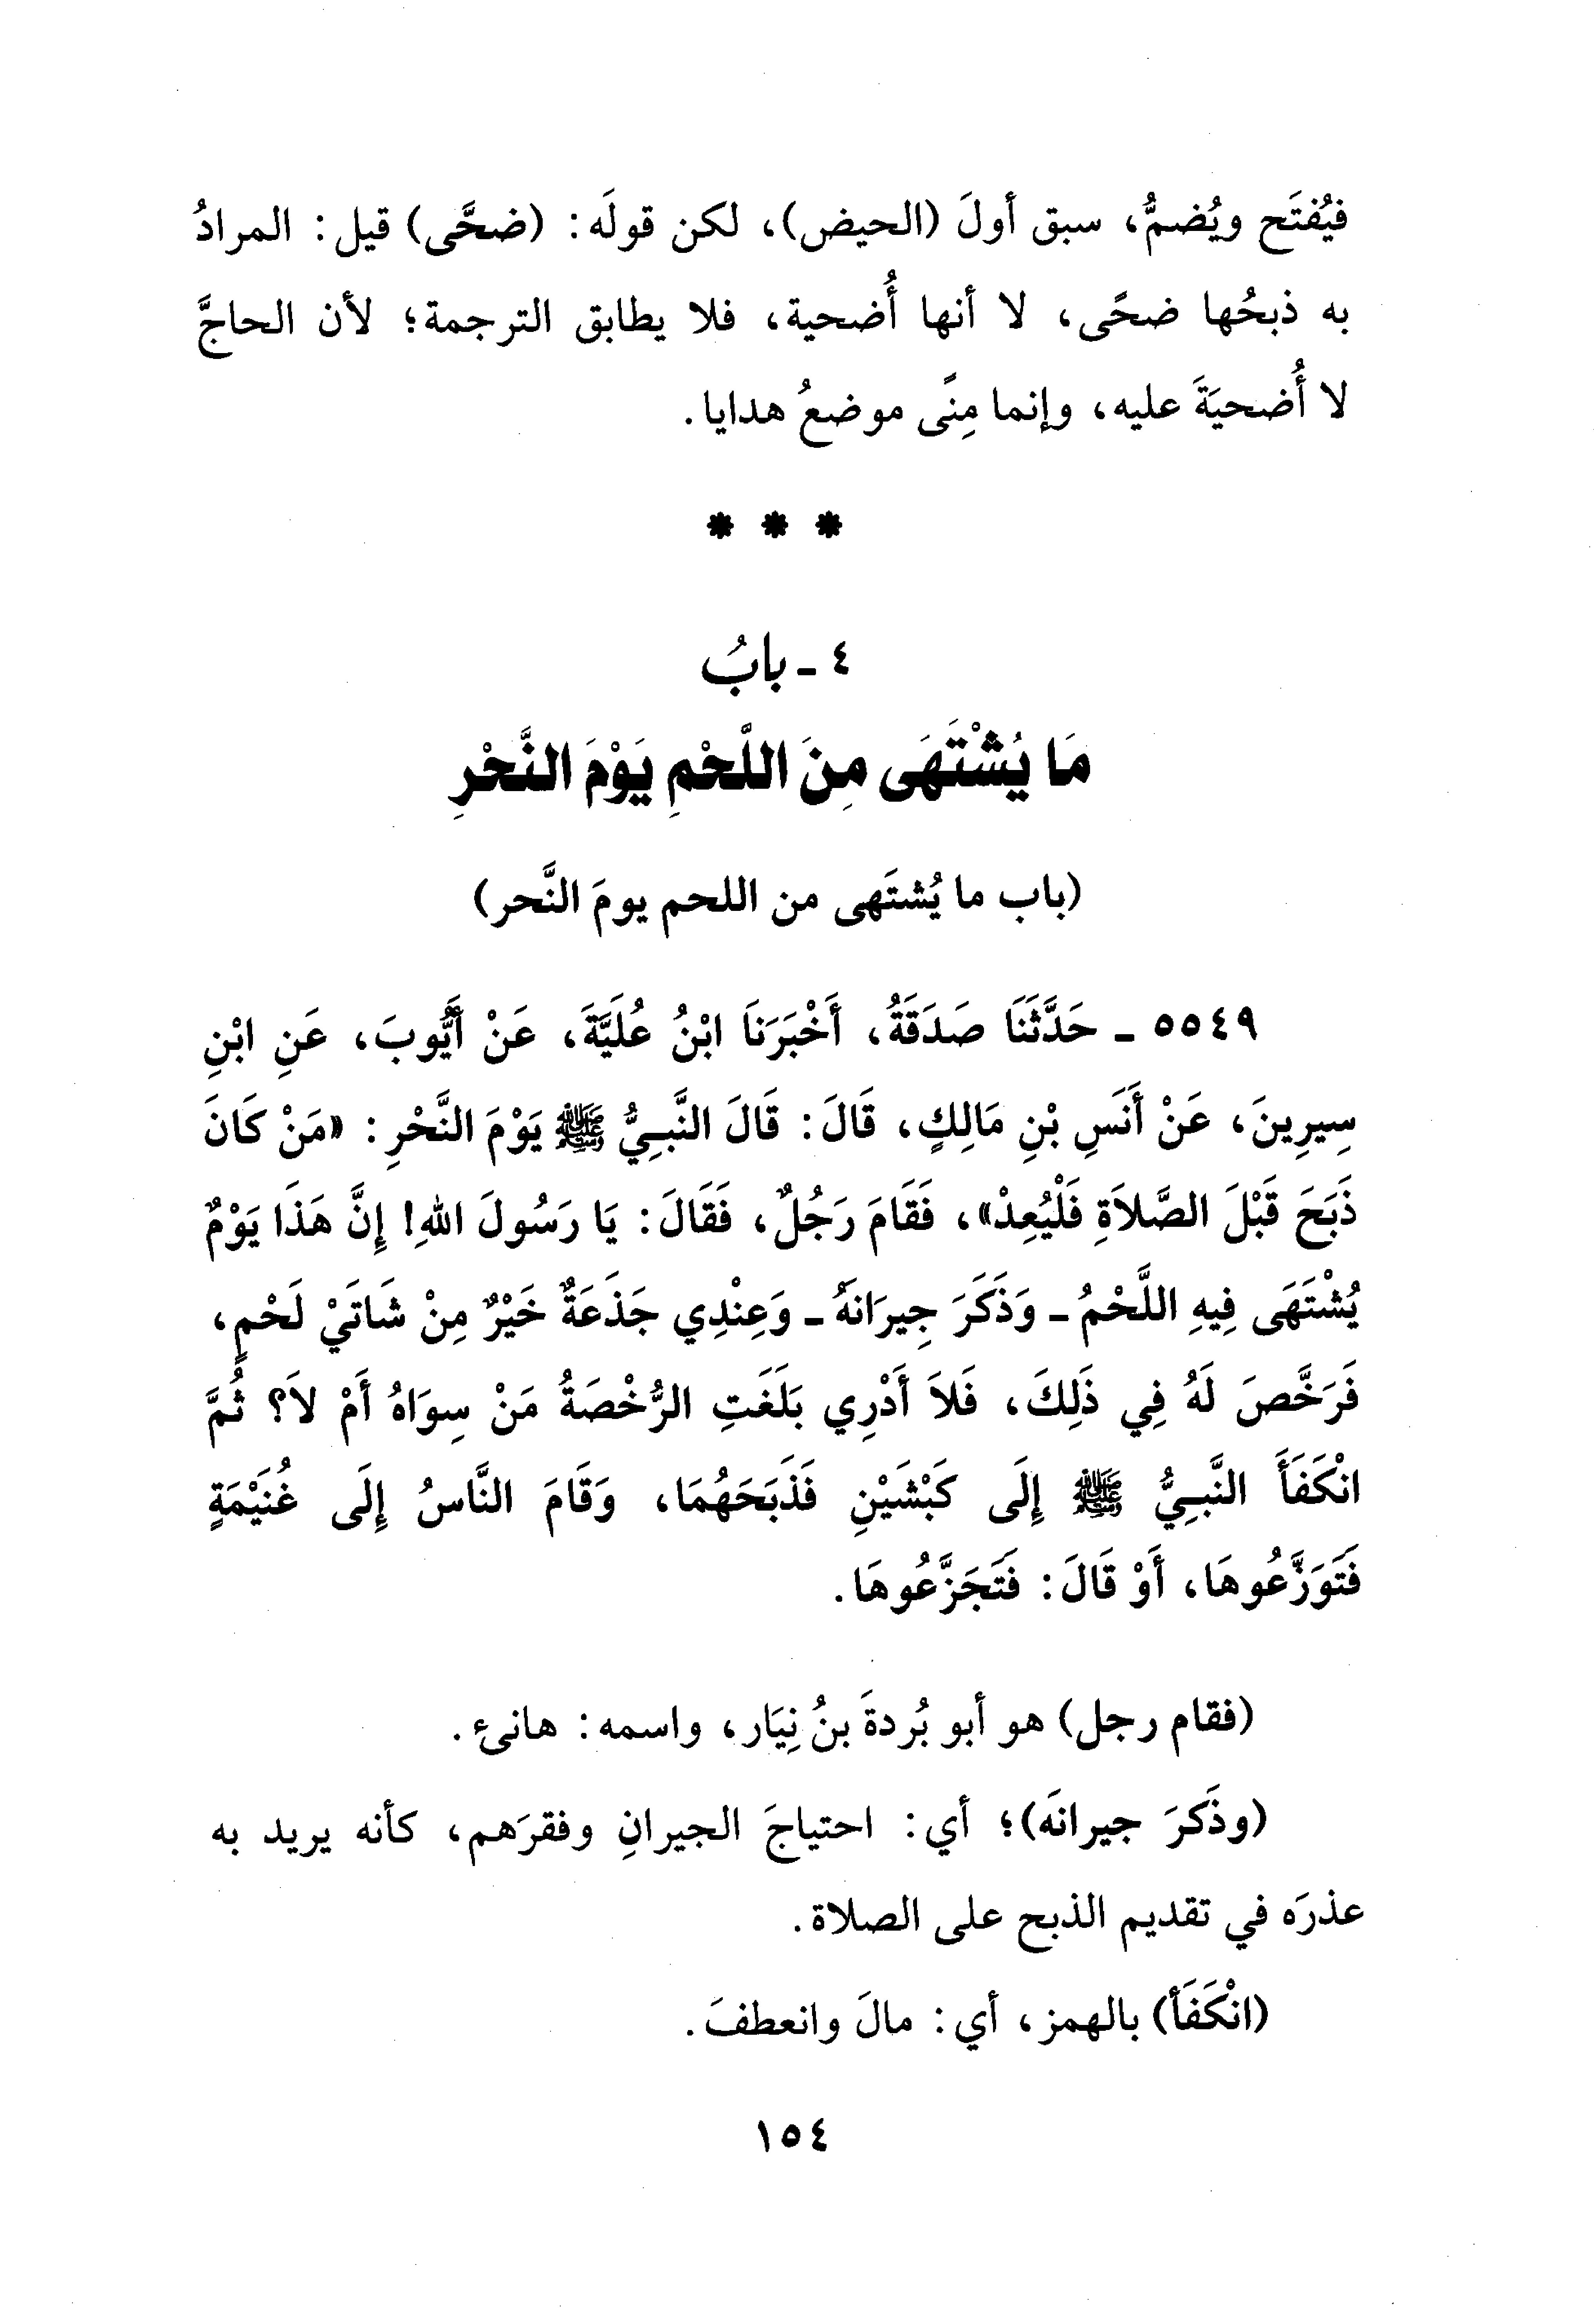 فيُفتَح ويُضمُّ، سبق أولَ (الحيض)، لكن قولَه: (ضحَّى) قيل: المرادُ
به ذبحُها ضحًى، لا أنها أُضحية، فلا يطابق الترجمة؛ لأن الحاجَّ
لا أُضحيَةَ عليه، وإنما مِنًى موضعُ هدايا.
* * *
٤ ـ بابُ
مَا يُشْتَهَى مِنَ اللَّحْمِ يَوْمَ النَّحْرِ
(باب ما يُشتَهى من اللحم يومَ النَّحر)
٥٥٤٩ ـ حَدَّثَنَا صَدَقَةُ، أَخْبَرَنَا ابْنُ عُلَيَّةَ، عَنْ أَيُّوبَ، عَنِ ابْنِ
سِيرِينَ، عَنْ أَنَسِ بْنِ مَالِكٍ، قَالَ: قَالَ النَّبِيُّ ﷺ يَوْمَ النَّحْرِ: «مَنْ كَانَ
ذَبَحَ قَبْلَ الصَّلاَةِ فَلْيُعِدْ»، فَقَامَ رَجُلٌ، فَقَالَ: يَا رَسُولَ اللهِ! إِنَّ هَذَا يَوْمٌ
يُشْتَهَى فِيهِ اللَّحْمُ ـ وَذَكَرَ جِيرَانَهُ ـ وَعِنْدِي جَذَعَةٌ خَيْرٌ مِنْ شَاتَيْ لَحْمٍ،
فَرَخَّصَ لَهُ فِي ذَلِكَ، فَلاَ أَدْرِي بَلَغَتِ الرُّخْصَةُ مَنْ سِوَاهُ أَمْ لاَ؟ ثُمَّ
انْكَفَأَ النَّبِيُّ ﷺ إِلَى كَبْشَيْنِ فَذَبَحَهُمَا، وَقَامَ النَّاسُ إِلَى غُنَيْمَةٍ
فَتَوَزَّعُوهَا، أَوْ قَالَ: فَتَجَزَّعُوهَا.
(فقام رجل) هو أبو بُردةَ بنُ نِيَار، واسمه: هانئ.
(وذَكرَ جيرانَه)؛ أي: احتياجَ الجيرانِ وفقرَهم، كأنه يريد به
عذرَه في تقديم الذبح على الصلاة.
(انْكَفَأ) بالهمز، أي: مالَ وانعطفَ.
١٥٤